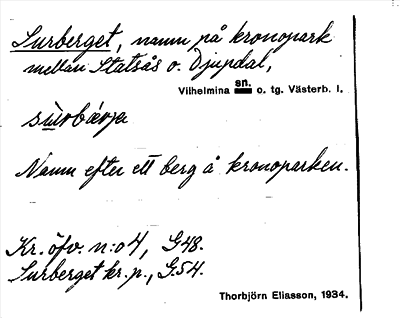 Surberget, namn på kronopark
mellan Statsås o. Djupdal,
Vilhelmina sn. o. tg. Västerb. l.
Namn efter ett berg å kronoparken.
Kr. öfv. n:o 4, G48.
Surberget kr. p., G.54.
Thorbjörn Eliasson, 1934.